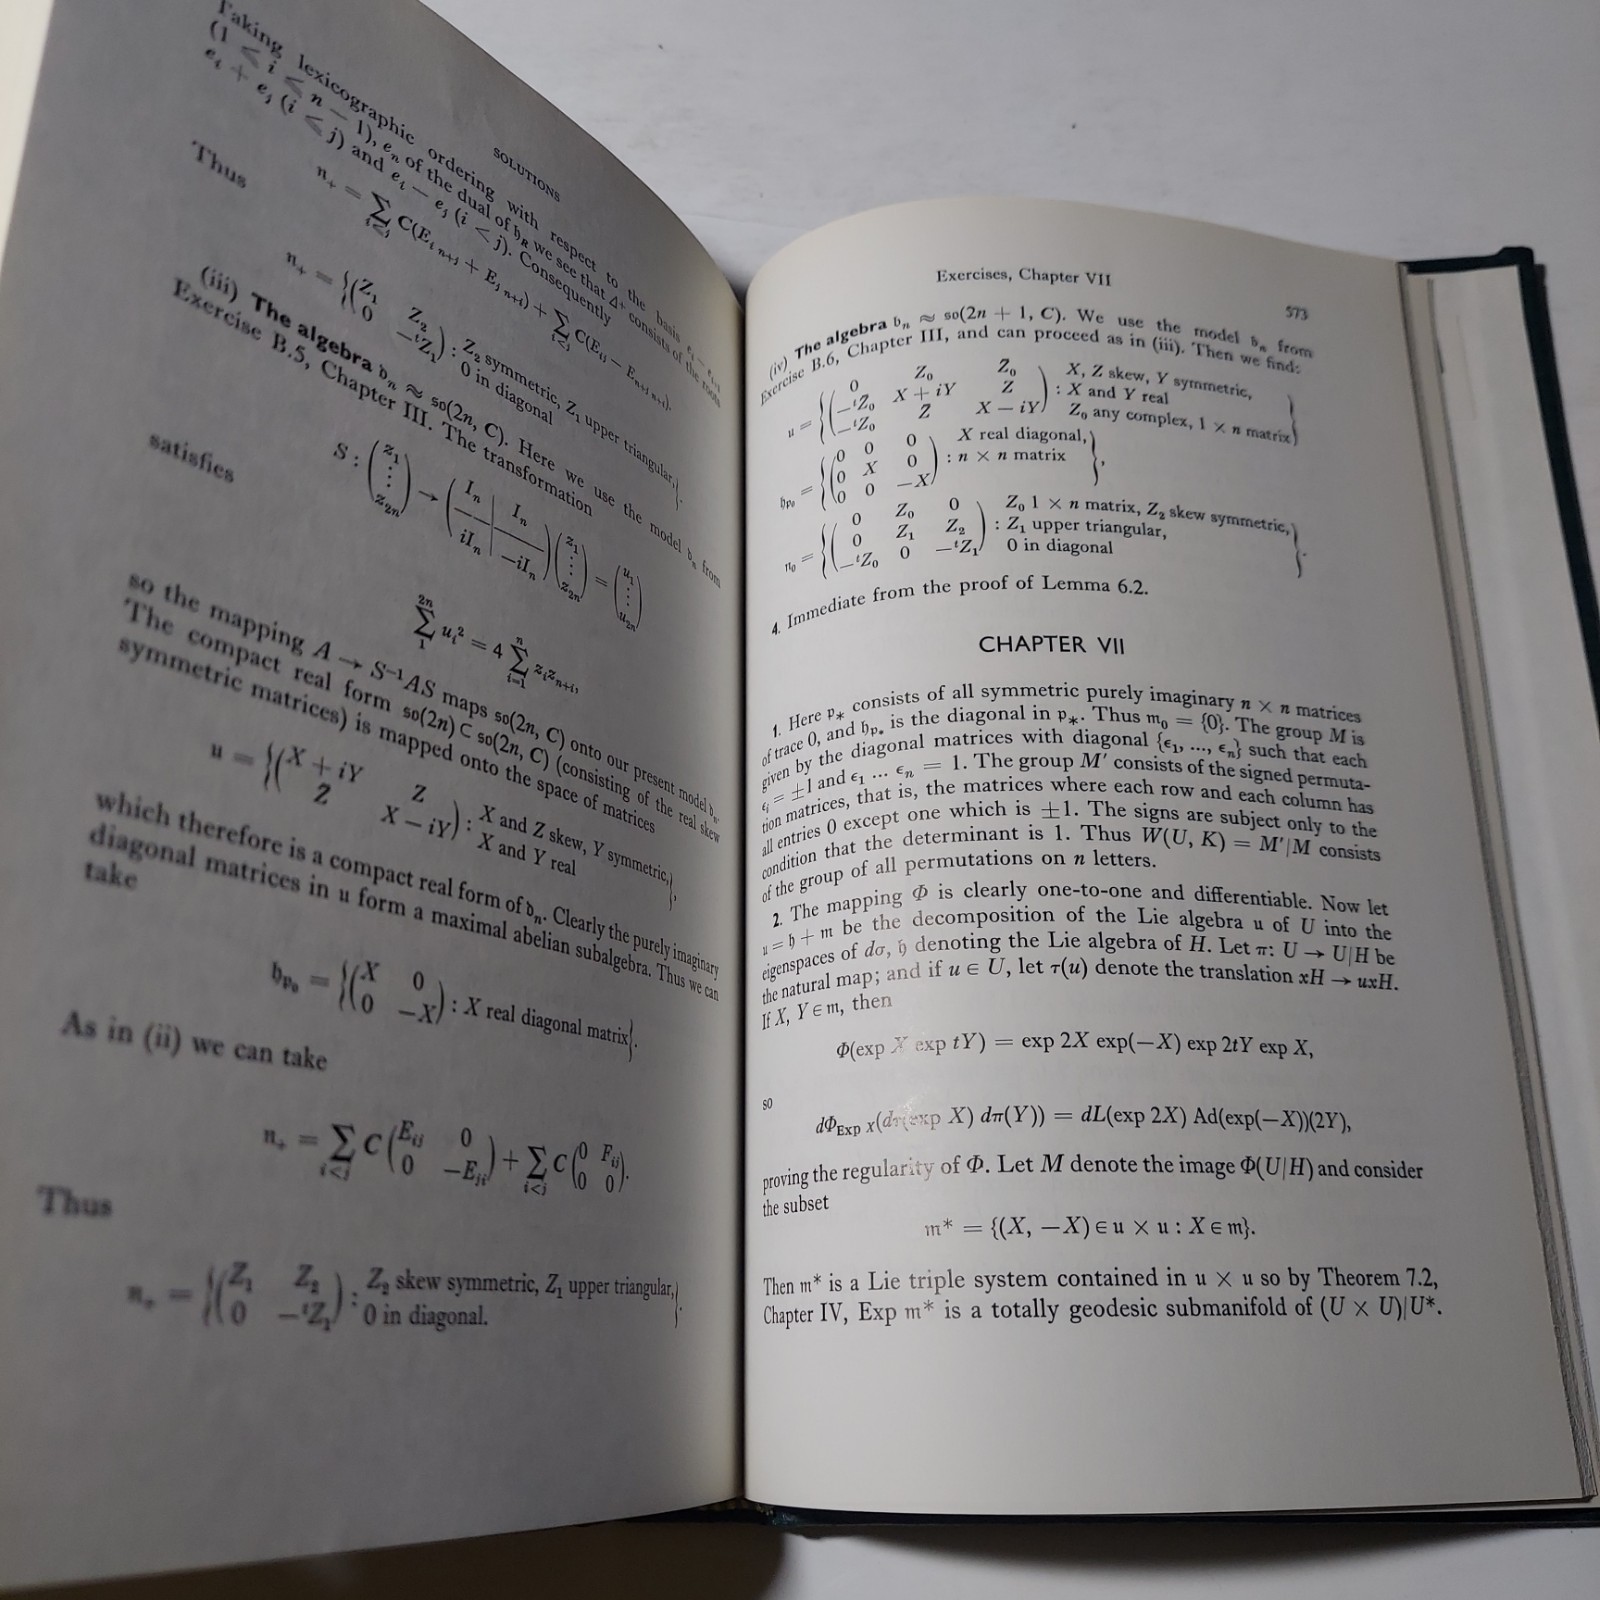 SOLUTIONS
Taking lexicographic ordering with respect to the basis e_i − e_{i+1}
(1 ≤ i ≤ n − 1), e_n of the dual of 𝔥_R we see that Δ⁺ consists of the roots
e_i + e_j (i ≤ j) and e_i − e_j (i < j). Consequently
n₊ = ∑_{i≤j} C(E_{i n+j} + E_{j n+i}) + ∑_{i<j} C(E_{ij} − E_{n+j n+i}).
Thus
n₊ = {(Z₁ Z₂
0 −ᵗZ₁) : Z₂ symmetric, Z₁ upper triangular,
0 in diagonal}.
(iii) The algebra 𝔡_n ≈ 𝔰𝔬(2n, C). Here we use the model 𝔡_n from
Exercise B.5, Chapter III. The transformation
S : (z₁ ⋮ z_{2n}) → (I_n I_n
iI_n −iI_n) (z₁ ⋮ z_{2n}) = (u₁ ⋮ u_{2n})
satisfies
∑₁^{2n} u_i² = 4 ∑_{i=1}^{n} z_i z_{n+i},
so the mapping A → S⁻¹AS maps 𝔰𝔬(2n, C) onto our present model 𝔡_n.
The compact real form 𝔰𝔬(2n) ⊂ 𝔰𝔬(2n, C) (consisting of the real skew
symmetric matrices) is mapped onto the space of matrices
𝔲 = {(X + iY Z
Z̄ X − iY) : X and Z skew, Y symmetric,
X and Y real},
which therefore is a compact real form of 𝔡_n. Clearly the purely imaginary
diagonal matrices in 𝔲 form a maximal abelian subalgebra. Thus we can
take
𝔥_{𝔭₀} = {(X 0
0 −X) : X real diagonal matrix}.
As in (ii) we can take
n₊ = ∑_{i<j} C(E_{ij} 0
0 −E_{ji}) + ∑_{i<j} C(0 F_{ij}
0 0).
Thus
= {(Z₁ Z₂
0 −ᵗZ₁) : Z₂ skew symmetric, Z₁ upper triangular,
0 in diagonal.}.
Exercises, Chapter VII
573
(iv) The algebra 𝔟_n ≈ 𝔰𝔬(2n + 1, C). We use the model 𝔟_n from
Exercise B.6, Chapter III, and can proceed as in (iii). Then we find:
𝔲 = {(0 Z₀ Z̄₀ X, Z skew, Y symmetric,
−ᵗZ̄₀ X + iY Z : X and Y real
−ᵗZ₀ Z̄ X − iY) Z₀ any complex, 1 × n matrix}
𝔥_{𝔭₀} = {(0 0 0 X real diagonal,
0 X 0 : n × n matrix
0 0 −X)},
𝔫₀ = {(0 Z₀ 0 Z₀ 1 × n matrix, Z₂ skew symmetric,
0 Z₁ Z₂ : Z₁ upper triangular,
−ᵗZ₀ 0 −ᵗZ₁) 0 in diagonal}.
4. Immediate from the proof of Lemma 6.2.
CHAPTER VII
1. Here 𝔭_* consists of all symmetric purely imaginary n × n matrices
of trace 0, and 𝔥_{𝔭_*} is the diagonal in 𝔭_*. Thus 𝔪₀ = {0}. The group M is
given by the diagonal matrices with diagonal {ϵ₁, ..., ϵ_n} such that each
ϵ_i = ±1 and ϵ₁ ... ϵ_n = 1. The group M′ consists of the signed permuta-
tion matrices, that is, the matrices where each row and each column has
all entries 0 except one which is ±1. The signs are subject only to the
condition that the determinant is 1. Thus W(U, K) = M′/M consists
of the group of all permutations on n letters.
2. The mapping Φ is clearly one-to-one and differentiable. Now let
𝔲 = 𝔥 + 𝔪 be the decomposition of the Lie algebra 𝔲 of U into the
eigenspaces of dσ, 𝔥 denoting the Lie algebra of H. Let π: U → U/H be
the natural map; and if u ∈ U, let τ(u) denote the translation xH → uxH.
If X, Y ∈ 𝔪, then
Φ(exp X exp tY) = exp 2X exp(−X) exp 2tY exp X,
so
dΦ_{Exp X}(dτ(exp X) dπ(Y)) = dL(exp 2X) Ad(exp(−X))(2Y),
proving the regularity of Φ. Let M denote the image Φ(U/H) and consider
the subset
𝔪* = {(X, −X) ∈ 𝔲 × 𝔲 : X ∈ 𝔪}.
Then 𝔪* is a Lie triple system contained in 𝔲 × 𝔲 so by Theorem 7.2,
Chapter IV, Exp 𝔪* is a totally geodesic submanifold of (U × U)/U*.